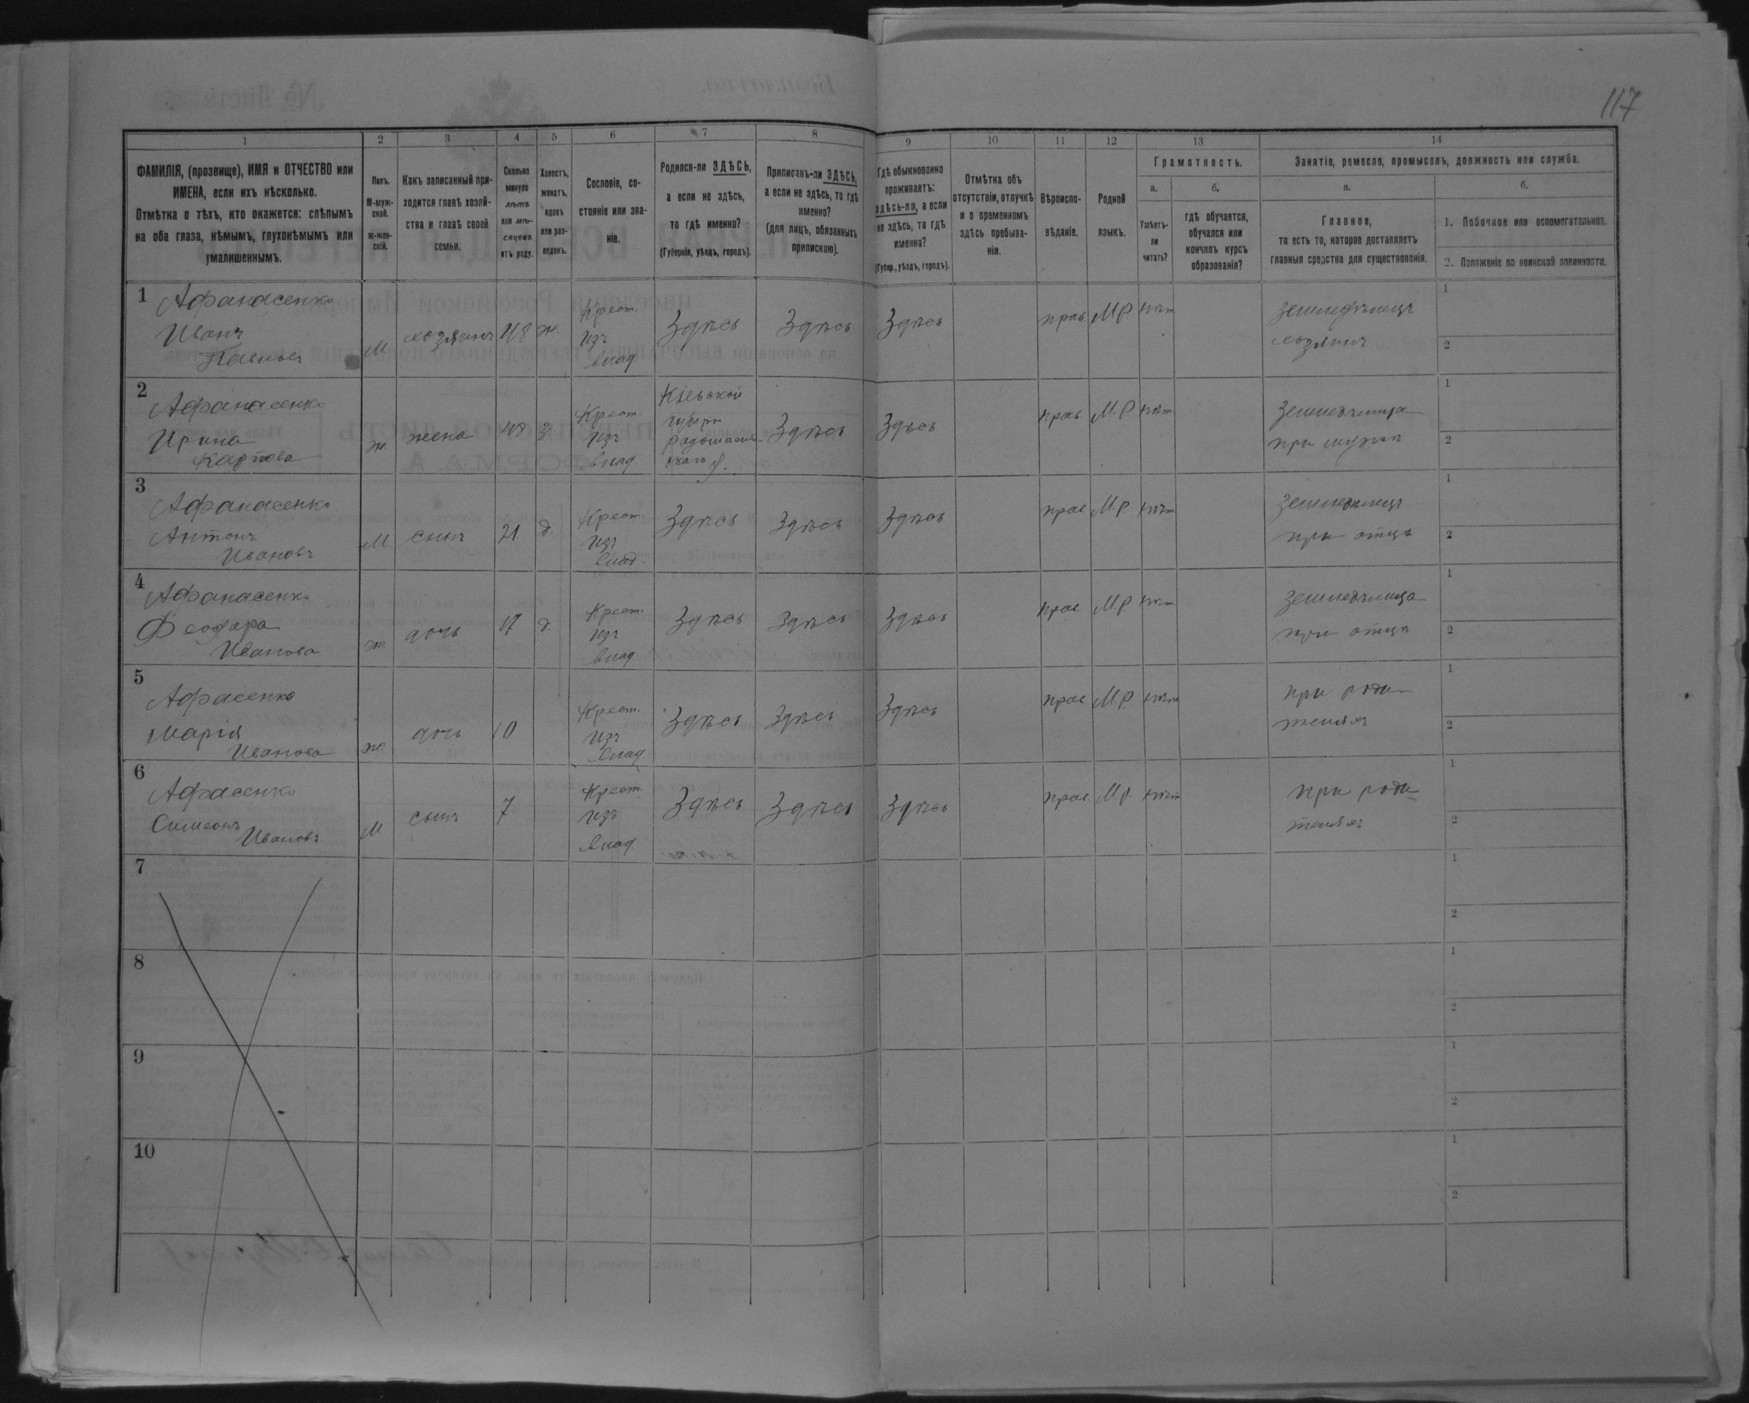 117
1
2
3
4
5
6
7
8
9
10
11
12
13
14
ФАМИЛІЯ, (прозвище), ИМЯ и ОТЧЕСТВО или
ИМЕНА, если ихъ нѣсколько.
Отмѣтка о тѣхъ, кто окажется: слѣпымъ
на оба глаза, нѣмымъ, глухонѣмымъ или
умалишеннымъ.
Полъ.
М-муж-
ской.
ж-жен-
скій.
Какъ записанный при-
ходится главѣ хозяй-
ства и главѣ своей
семьи.
Сколько
минуло
лѣтъ
или мѣ-
сяцевъ
отъ роду.
Холостъ,
женатъ,
вдовъ
или раз-
веденъ.
Сословіе, со-
стояніе или зва-
ніе.
Родился-ли ЗДѢСЬ,
а если не здѣсь,
то гдѣ именно?
(Губернія, уѣздъ, городъ).
Приписанъ-ли ЗДѢСЬ,
а если не здѣсь, то гдѣ
именно?
(для лицъ, обязанныхъ
припискою).
Гдѣ обыкновенно
проживаетъ:
здѣсь-ли, а если
не здѣсь, то гдѣ
именно?
(Губер., уѣздъ, городъ).
Отмѣтка объ
отсутствіи, отлучкѣ
и о временномъ
здѣсь пребыва-
ніи.
Вѣроиспо-
вѣданіе.
Родной
языкъ.
Грамотность.
а.
б.
Умѣетъ-
ли
читать?
гдѣ обучается,
обучался или
кончилъ курсъ
образованія?
Занятіе, ремесло, промыселъ, должность или служба.
а.
б.
Главное,
то есть то, которое доставляетъ
главныя средства для существованія.
1. Побочное или вспомогательное.
2. Положеніе по воинской повинности.
1
Афанасенко
Иванъ
Павловъ
М
хозяинъ
48
ж.
Крест.
изъ
влад.
Здѣсь
Здѣсь
Здѣсь
прав
М.Р.
нѣт
земледѣлецъ
хозяинъ
1
2
2
Афанасенко
Ирина
Карпова
ж.
жена
48
з.
Крест.
изъ
влад.
Кіевской
губерн
Здѣсь
Здѣсь
прав
М.Р
нѣт
земледѣлица
при мужѣ
1
2
3
Афанасенко
Антонъ
Ивановъ
М
сынъ
21
х.
Крест.
изъ
влад.
Здѣсь
Здѣсь
Здѣсь
прав
М.Р
нѣт
земледѣлецъ
при отцѣ
1
2
4
Афанасенко
Феодора
Иванова
ж.
дочь
17
д.
Крест.
изъ
влад.
Здѣсь
Здѣсь
Здѣсь
прав
М.Р
нѣт
земледѣлица
при отцѣ
1
2
5
Афасенко
Марія
Иванова
ж.
дочь
10
Крест.
изъ
влад.
Здѣсь
Здѣсь
Здѣсь
прав
М.Р
нѣт
при роди-
теляхъ
1
2
6
Афасенко
Симеонъ
Ивановъ
М
сынъ
7
Крест.
изъ
влад.
Здѣсь
Здѣсь
Здѣсь
прав
М.Р.
нѣт
при роди-
теляхъ
1
2
7
1
2
8
1
2
9
1
2
10
1
2